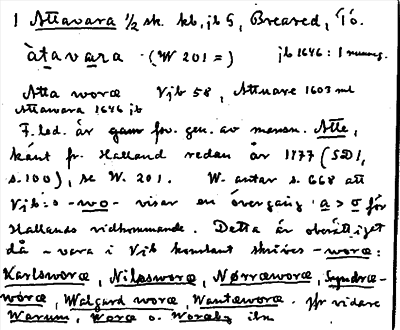 1 Attavara 1/2 sk. kb, jb G, Breared, Tö.
àtavara (W 201 =) jb 1646: 1
Atta woræ Vjb 58, Attuare 1603 ml
Attawara 1646 jb
F. led. är gam fov. gen. av mansn. Atte,
känt fr. Halland redan år 1177 (SD 1,
s. 100), se W. 201. W. antar s. 668 att
Vjb:s -wo- visar en övergång a > o för
Hallands vidkommande. Detta är oberättiget
då -vara i Vjb konstant skrives -woræ:
Karlsworæ, Nilæsworæ, Nørræworæ,
woræ, Walgard woræ, Wantæworæ. jfr vidare
Warum, Waræ o. Woræby ilm